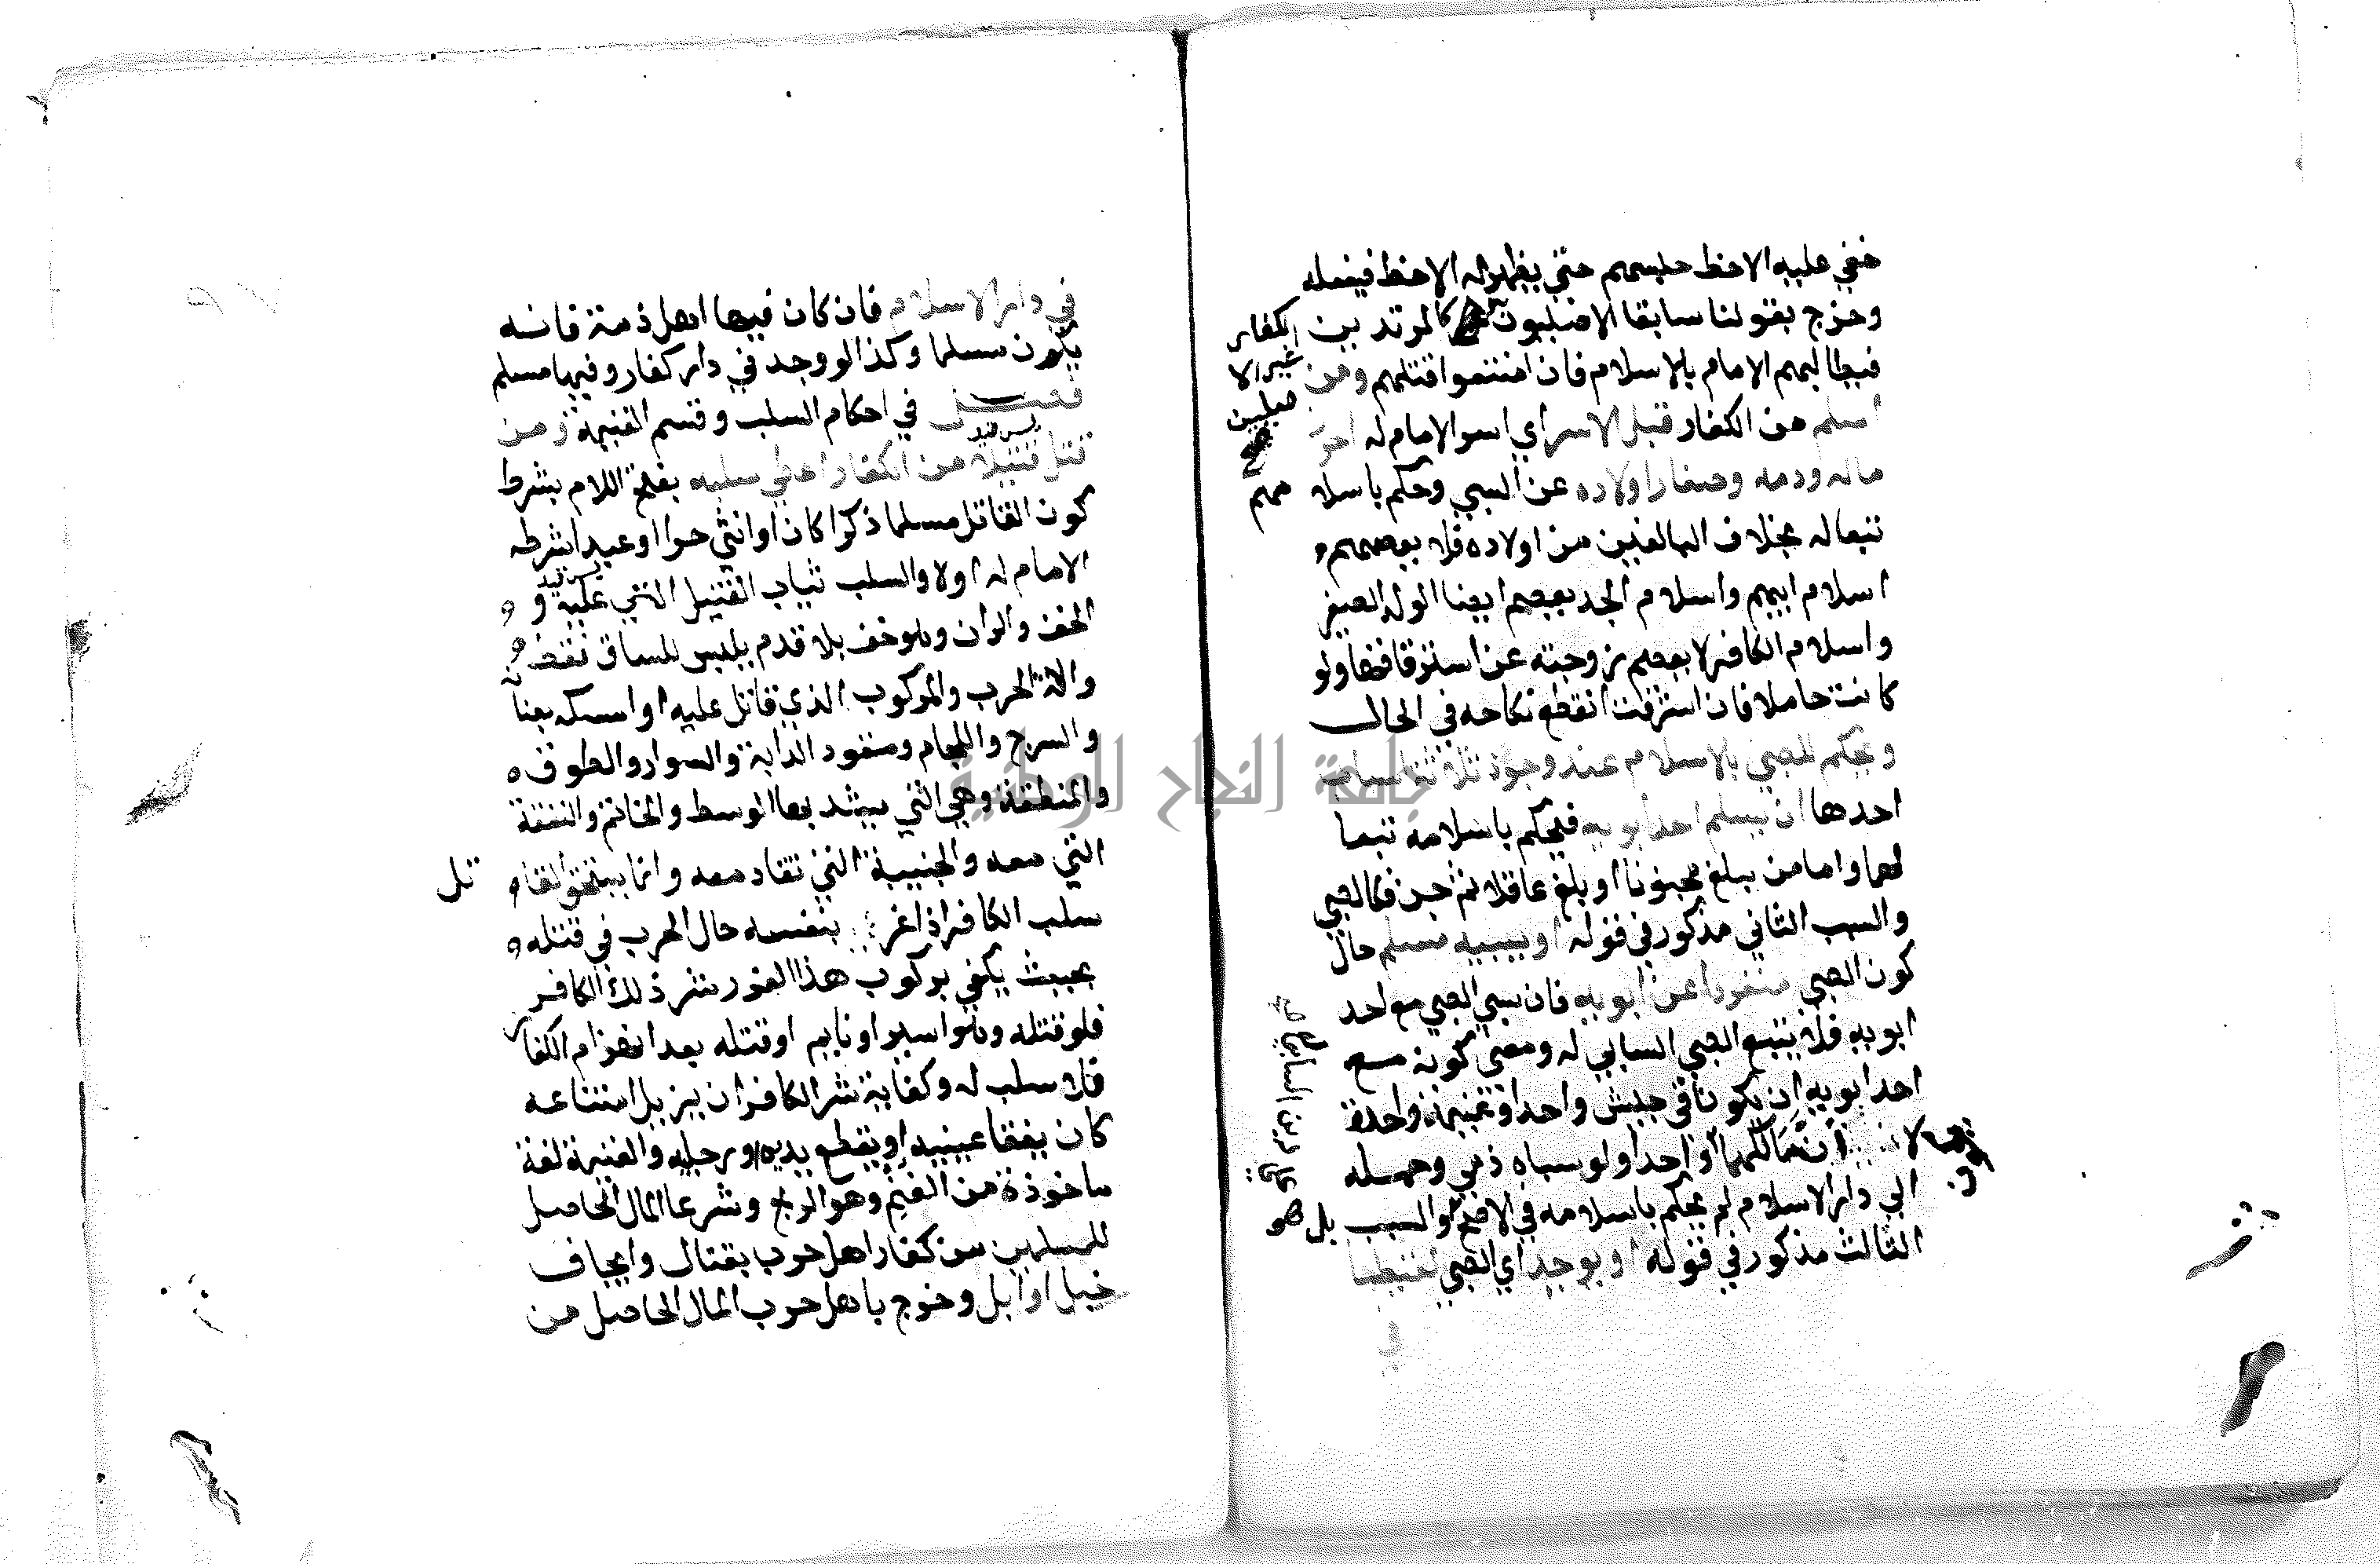 خفي عليه الاحظ حبسهم حتى يظهر له الاحظ فيفعله
وخرج بقولنا سابقا الاصليون كالمرتدين الكفار
غير الا
صليين
فيطالبهم الامام بالاسلام فان امتنعوا قتلهم ومن
اسلم من الكفار قبل الاسر اي اسر الامام له احرز
ماله ودمه وصغار اولاده عن السبي وحكم باسلا مهم
تبعا له بخلاف البالغين من اولاده فلا يعصمهم
اسلام ابيهم واسلام الجد يعصم ايضا الولد الصغير
واسلام الكافر لا يعصم زوجته عن استرقاقها ولو
كانت حاملا فان استرقت انقطع نكاحه في الحال
ويحكم للصبي بالاسلام عند وجود ثلاثة اسباب
احدها ان يسلم احد ابويه فيحكم باسلامه تبعا
لهما واما من بلغ مجنونا او بلغ عاقلا ثم جن فكالصبي
والسبب الثاني مذكور في قوله او يسبيه مسلم حال
كون الصبي منفردا عن ابويه فان سبي الصبي مع احد
ابويه فلا يتبع الصبي السابي له ومعنى كونه مع
احد ابويه ان يكونا في جيش واحد وغنيمة واحدة
لا ان مالكهما واحد ولو سباه ذمي وحمله
الى دار الاسلام لم يحكم باسلامه في الاصح والسبب بل هو
على دين السابي له
الثالث مذكور في قوله او يوجد اي الصبي لقيطا
في
في دار الاسلام فان كان فيها اهل ذمة فانه
يكون مسلما وكذا لو وجد في دار كفار وفيها مسلم
فصل في احكام السلب وقسم الغنيمة ومن
قتل قتيلا من الكفار اعطي سلبه بفتح اللام بشرط
كون القاتل مسلما ذكرا كان او انثى حرا او عبدا شرطه
الامام له اولا والسلب ثياب القتيل التي عليه و
الخف والران وهو خف بلا قدم يلبس للساق فقط
والات الحرب والمركوب الذي قاتل عليه او امسكه بعنانه
والسرج واللجام ومقود الدابة والسوار والطوق
والمنطقة وهي التي يشد بها الوسط والخاتم والنفقة
التي معه والجنيبة التي تقاد معه وانما يستحق القا تل
سلب الكافر اذا غر بنفسه حال الحرب في قتله
بحيث يكفي بركوب هذا الغرر شر ذلك الكافر
فلو قتله وهو اسير او نايم او قتله بعد انهزام الكفار
فلا سلب له وكفاية شر الكافر ان يزيل امتناعه
كان يفقا عينيه او يقطع يديه او رجليه والغنيمة لغة
ماخوذة من الغنم وهو الربح وشرعا المال الحاصل
للمسلمين من كفار اهل حرب بقتال وايجاف
خيل او ابل وخرج باهل حرب المال الحاصل من
جامعة النجاح الوطنية